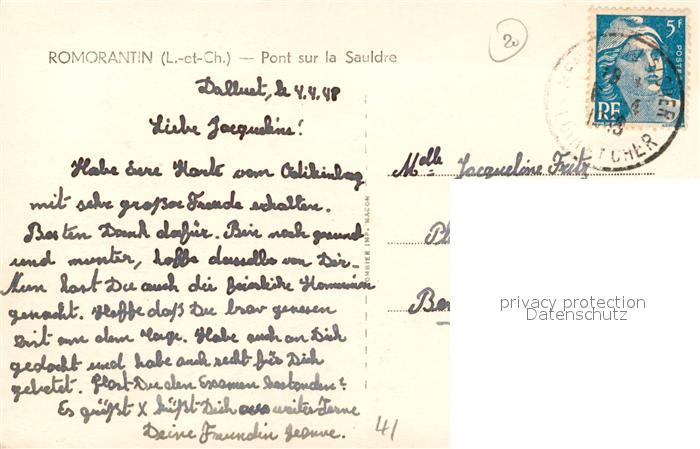 ROMORANTIN (L.-et-Ch.) — Pont sur la Sauldre
20
5F
POSTES
RF
CHER
le 4.4.48
Liebe Jacqueline!
Habe Eure Karte vom
mit sehr großer Freude erhalten.
Besten Dank dafür. Bin noch gesund
und munter, hoffe dasselbe von Dir.
Nun hast Du auch die feierliche Kommunion
gemacht. Hoffe daß Du brav gewesen
bist an dem Tage. Habe auch an Dich
gedacht und habe auch recht für Dich
gebetet. Hast Du den Examen bestanden?
Es grüßt x küßt Dich aus weiter Ferne
Deine Freundin Jeanne.
41
Melle Jacqueline Fritz
COMBIER IMP. MACON
privacy protection
Datenschutz